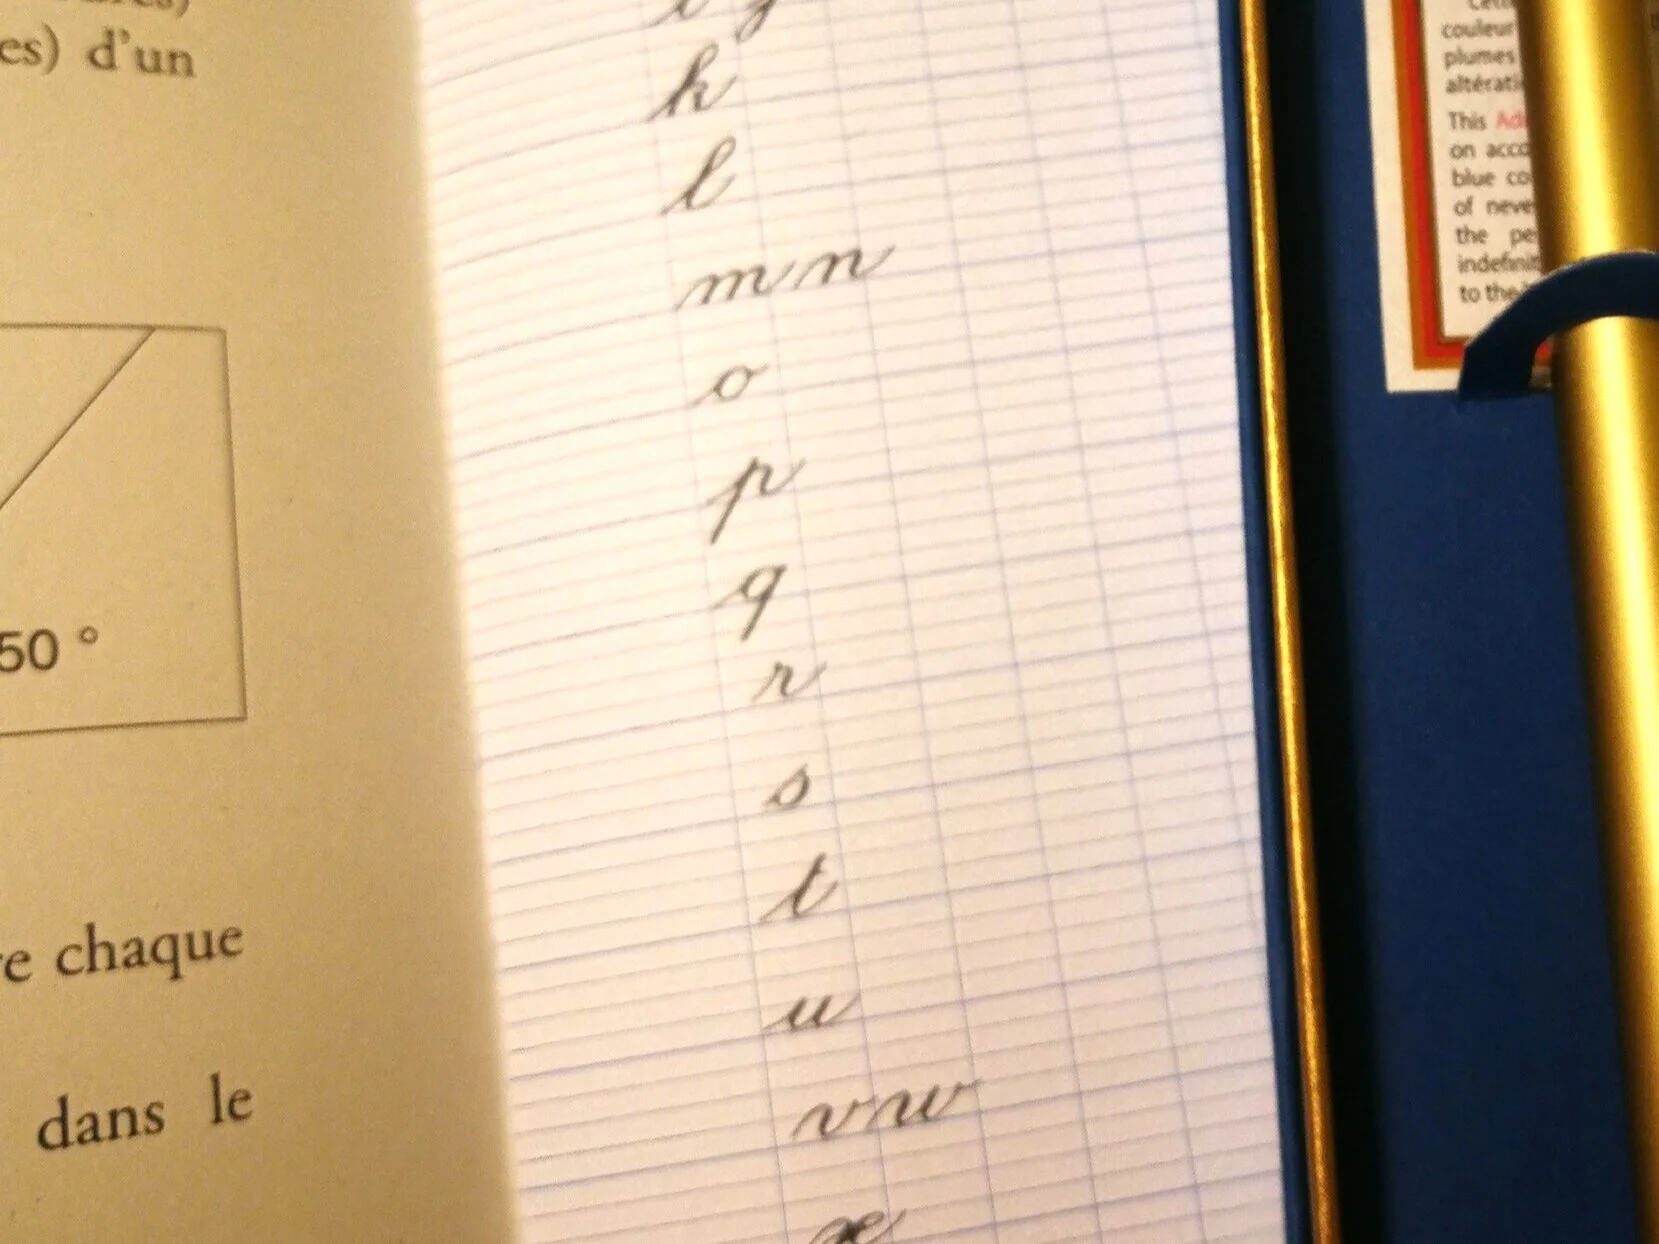 es) d'un
50 °
re chaque
dans le
k
l
m n
o
p
q
r
s
t
u
v w
x
couleur
plumes
This Ad
on acco
blue co
of neve
the pe
indefinit
to the